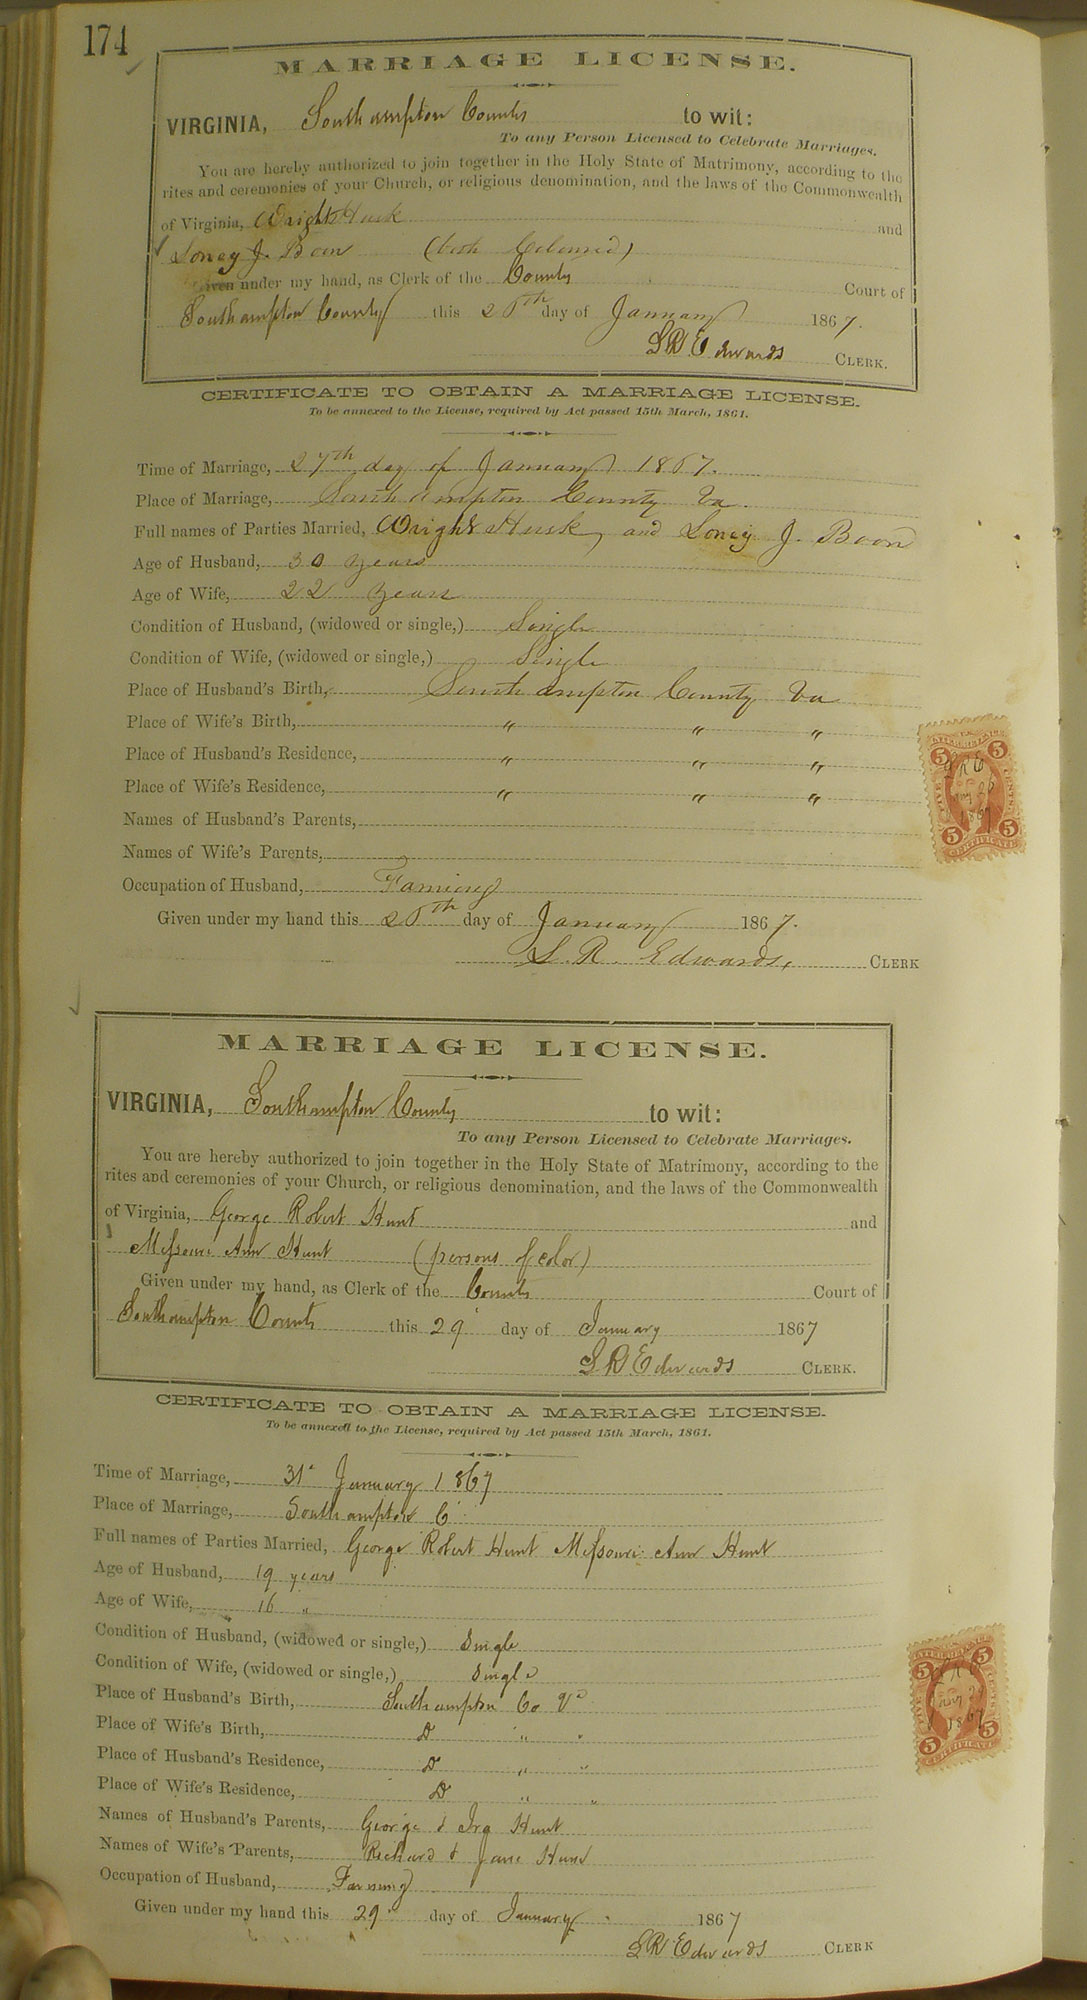 174
MARRIAGE LICENSE.
VIRGINIA, Southampton County to wit:
To any Person Licensed to Celebrate Marriages.
You are hereby authorized to join together in the Holy State of Matrimony, according to the
rites and ceremonies of your Church, or religious denomination, and the laws of the Commonwealth
of Virginia, Wright Husk and
Loney J. Boon (both Coloured)
Given under my hand, as Clerk of the County Court of
Southampton County this 26th day of January 1867.
L R Edwards CLERK.
CERTIFICATE TO OBTAIN A MARRIAGE LICENSE.
To be annexed to the License, required by Act passed 15th March, 1861.
Time of Marriage, 27th day of January 1867.
Place of Marriage, Southampton County Va.
Full names of Parties Married, Wright Husk, and Loney J. Boon
Age of Husband, 30 years
Age of Wife, 22 years
Condition of Husband, (widowed or single,) Single
Condition of Wife, (widowed or single,) Single
Place of Husband's Birth, Southampton County Va
Place of Wife's Birth, " " "
Place of Husband's Residence, " " "
Place of Wife's Residence, " " "
Names of Husband's Parents,
Names of Wife's Parents,
Occupation of Husband, Farming
Given under my hand this 26th day of January 1867.
L. R. Edwards, CLERK
MARRIAGE LICENSE.
VIRGINIA, Southampton County to wit:
To any Person Licensed to Celebrate Marriages.
You are hereby authorized to join together in the Holy State of Matrimony, according to the
rites and ceremonies of your Church, or religious denomination, and the laws of the Commonwealth
of Virginia, George Robert Hunt and
Missouri Ann Hunt (persons of color)
Given under my hand, as Clerk of the County Court of
Southampton County this 29 day of January 1867
L R Edwards CLERK.
CERTIFICATE TO OBTAIN A MARRIAGE LICENSE.
To be annexed to the License, required by Act passed 15th March, 1861.
Time of Marriage, 31st January 1867
Place of Marriage, Southampton C
Full names of Parties Married, George Robert Hunt Missouri Ann Hunt
Age of Husband, 19 years
Age of Wife, 16 "
Condition of Husband, (widowed or single,) Single
Condition of Wife, (widowed or single,) Single
Place of Husband's Birth, Southampton Co Va
Place of Wife's Birth, Do " "
Place of Husband's Residence, Do " "
Place of Wife's Residence, Do " "
Names of Husband's Parents, George & Ira Hunt
Names of Wife's Parents, Richard & Jane Hunt
Occupation of Husband, Farming
Given under my hand this 29 day of January 1867
L R Edwards CLERK